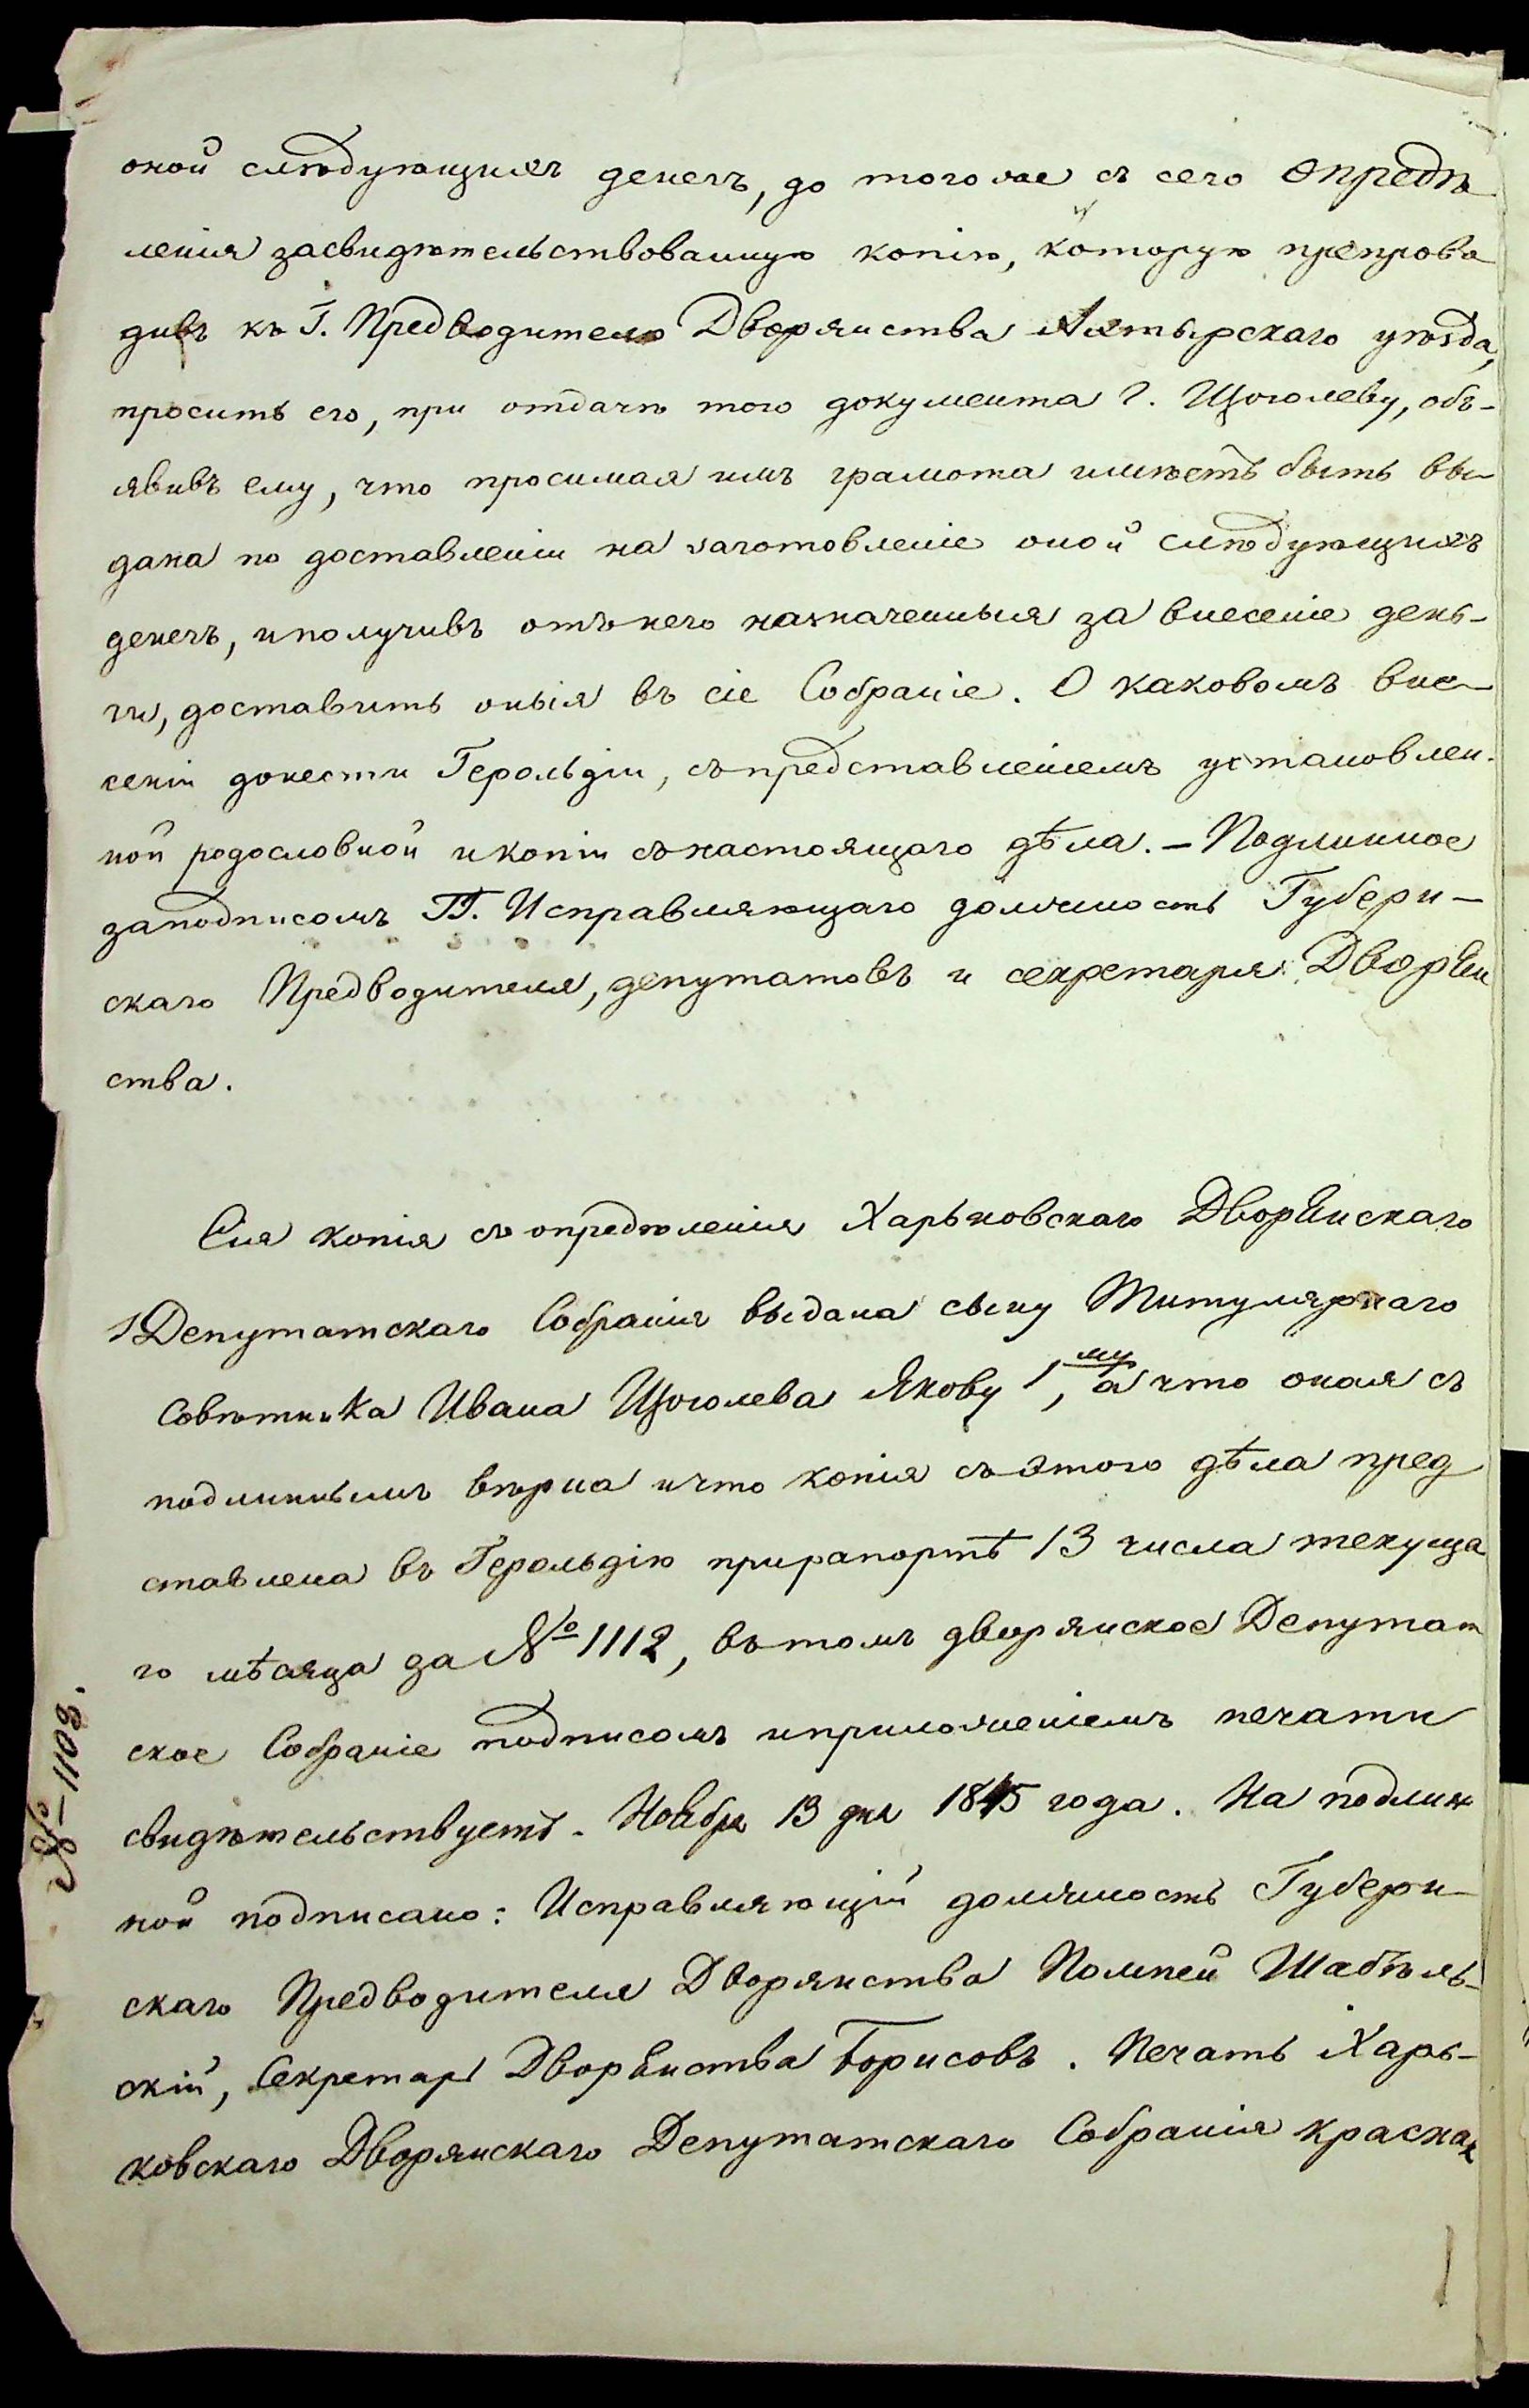 оной слѣдующихъ денегъ, до того же съ сего опредѣ
ленія засвидѣтельствованную копію, которую препрово
дивъ къ Г. Предводителю Дворянства Ахтырскаго уѣзда,
просить его, при отдачѣ того документа Г. Щоголеву, объ-
явивъ ему, что просимая имъ грамота имѣетъ быть вы-
дана по доставленіи на заготовленіе оной слѣдующихъ
денегъ, и получивъ отъ него назначенныя за внесеніе день-
ги, доставить оныя въ сіе Собраніе. О каковомъ вне-
сеніи донести Герольдіи, съ представленіемъ установлен-
ной родословной и копіи съ настоящаго дѣла. – Подлинное
за подписомъ ГГ. Исправляющаго должность Губерн-
скаго Предводителя, депутатовъ и секретаря Дворян
ства.
Сія копія съ опредѣленія Харьковскаго Дворянскаго
Депутатскаго Собранія выдана сыну Титулярнаго
Совѣтника Ивана Щоголева Якову 1му, а что оная съ
подлиннымъ вѣрна и что копія съ этого дѣла пред
ставлена въ Герольдію при рапортѣ 13 числа текуща
го мѣсяца за № 1112, въ томъ дворянское Депутат
ское Собраніе подписомъ и приложеніемъ печати
свидѣтельствуетъ. Ноября 13 дня 1845 года. На подлин
ной подписано: Исправляющій должность Губерн-
скаго Предводителя Дворянства Помпей Шабѣль-
скій, Секретарь Дворянства Борисовъ. Печать Харь-
ковскаго Дворянскаго Депутатскаго Собранія красная
№ 1103.